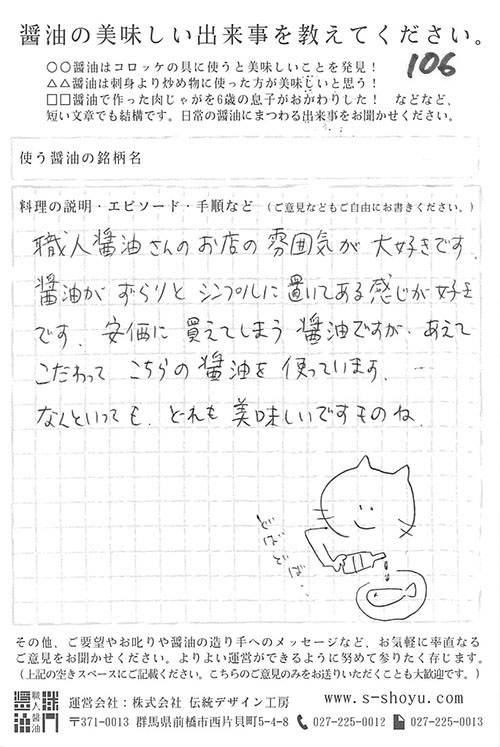 醤油の美味しい出来事を教えてください。
○○醤油はコロッケの具に使うと美味しいことを発見！
106
△△醤油は刺身より炒め物に使った方が美味しいと思う！
□□醤油で作った肉じゃがを6歳の息子がおかわりした！　などなど、
短い文章でも結構です。日常の醤油にまつわる出来事をお聞かせください。
使う醤油の銘柄名
料理の説明・エピソード・手順など（ご意見などもご自由にお書きください。）
職人醤油さんのお店の雰囲気が大好きです。
醤油がずらりとシンプルに置いてある感じが好き
です。安価に買えてしまう醤油ですが、あえて
こだわってこちらの醤油を使っています。
なんといっても、どれも美味しいですものね。
どばどば…
その他、ご要望やお叱りや醤油の造り手へのメッセージなど、お気軽に率直なる
ご意見をお聞かせください。よりよい運営ができるように努めて参りたく存じます。
（上記の空きスペースにご記載ください。こちらのご意見のみをお送りいただくことも大歓迎です。）
職人醤油
運営会社：株式会社 伝統デザイン工房
www.s-shoyu.com
〒371-0013 群馬県前橋市西片貝町5-4-8
027-225-0012
027-225-0013